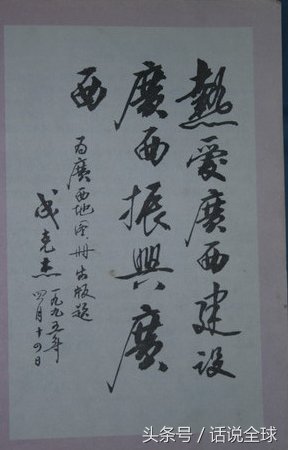 熱愛廣西建設
廣西振興廣
西
为廣西地图册出版题
成克杰
一九九五年
四月十四日
头条号/话说全球